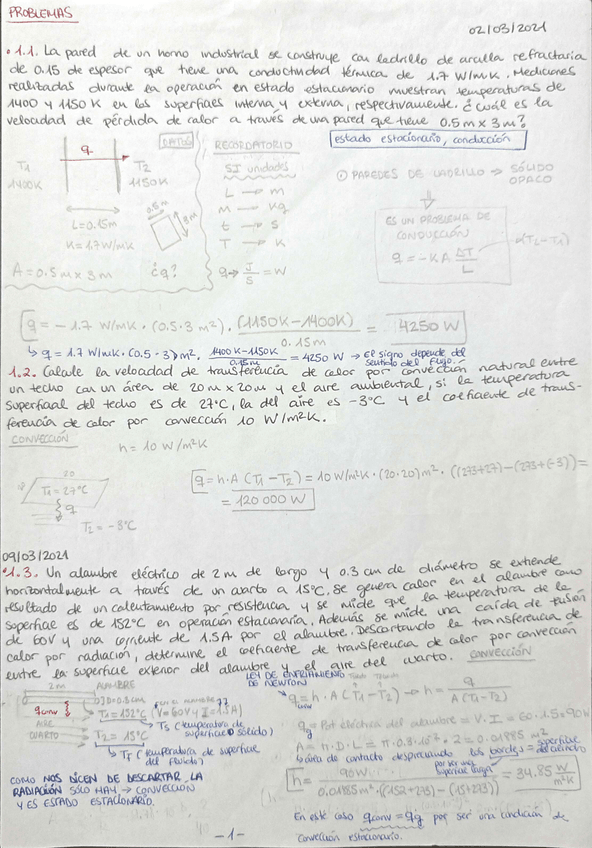 PROBLEMAS
02/03/2021
• 1.1. La pared de un horno industrial se construye con ladrillo de arcilla refractaria
de 0.15 de espesor que tiene una conductividad térmica de 1.7 W/mK. Mediciones
realizadas durante la operación en estado estacionario muestran temperaturas de
1400 y 1150 K en las superficies interna y externa, respectivamente. ¿Cuál es la
velocidad de pérdida de calor a través de una pared que tiene 0.5 m x 3 m?
estado estacionario, conducción
DATOS
q
T1
1400K
T2
1150K
L=0.15m
K=1.7 W/mK
0.5m
3m
A = 0.5 m x 3 m
¿q?
RECORDATORIO
SI unidades
L → m
M → Kg
t → s
T → K
q → J/s = W
① PAREDES DE LADRILLO → SÓLIDO
OPACO
ES UN PROBLEMA DE
CONDUCCIÓN
q = -KA ΔT/L
(T2-T1)
q = -1.7 W/mK · (0.5·3 m²) · (1150K - 1400K)/0.15m = 4250 W
↳ q = 1.7 W/mK · (0.5·3) m² · 1400K-1150K/0.15m = 4250 W → El signo depende del
sentido del flujo.
1.2. Calcule la velocidad de transferencia de calor por convección natural entre
un techo con un área de 20 m x 20 m y el aire ambiental, si la temperatura
superficial del techo es de 27°C, la del aire es -3°C y el coeficiente de trans-
ferencia de calor por convección 10 W/m²K.
CONVECCIÓN
h = 10 W/m²K
20
T1 = 27°C
q
T2 = -3°C
q = h·A (T1-T2) = 10 W/m²K · (20·20) m² · ((273+27)-(273+(-3)) =
= 120 000 W
09/03/2021
• 1.3. Un alambre eléctrico de 2 m de largo y 0.3 cm de diámetro se extiende
horizontalmente a través de un cuarto a 15°C. Se genera calor en el alambre como
resultado de un calentamiento por resistencia y se mide que la temperatura de la
superficie es de 152°C en operación estacionaria. Además se mide una caída de tensión
de 60V y una corriente de 1.5A por el alambre. Descartando la transferencia de
calor por radiación, determine el coeficiente de transferencia de calor por convección
entre la superficie exterior del alambre y el aire del cuarto.
CONVECCIÓN
2 m
ALAMBRE
D=0.3cm
qconv
T1 = 152°C (V=60V y I=1.5A)
AIRE
CUARTO
T2 = 15°C
Ts (temperatura de
superficie sólido)
Tf (temperatura de superficie
del fluido)
COMO NOS DICEN DE DESCARTAR LA
RADIACIÓN SÓLO HAY → CONVECCIÓN
Y ES ESTADO ESTACIONARIO.
LEY DE ENFRIAMIENTO
DE NEWTON
qconv = h·A (T1-T2) → h = q/A(T1-T2)
qg = Pot eléctrica del alambre = V·I = 60·1.5 = 90W
A = π·D·L = π·0.3·10⁻²·2 = 0.01885 m²
área de contacto despreciando los bordes = superficie
del cilindro
por ser una
superficie larga
h = 90W/0.01885m²·((152+273)-(15+273)) = 34.85 W/m²K
En este caso qconv = qg por ser una condición de
convección estacionario.
-1-